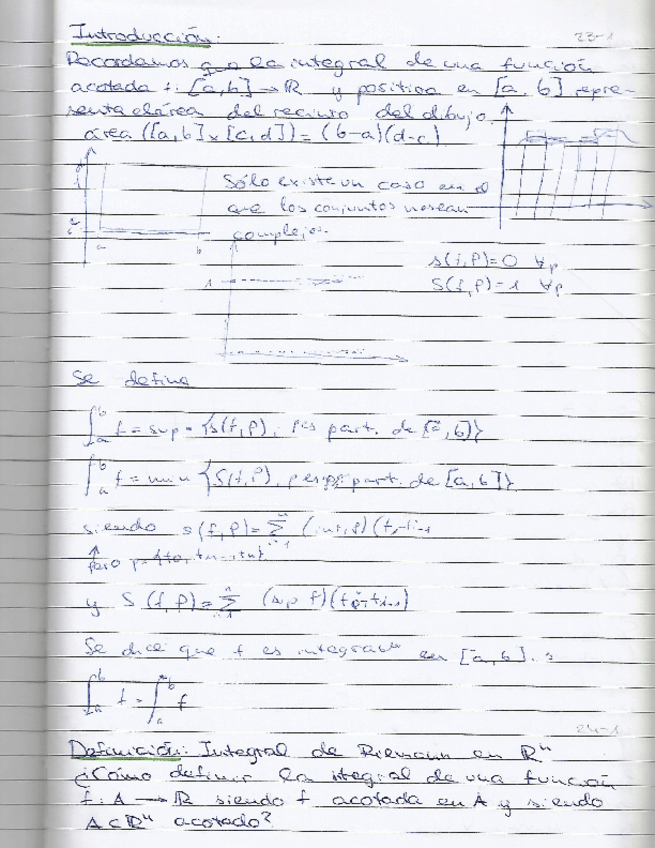 Introducción:
23-1
Recordamos que la integral de una función
acotada f: [a,b] → R y positiva en [a, b] repre-
senta el área del recinto del dibujo.
área ([a,b] x [c,d]) = (b-a)(d-c)
Sólo existe un caso en el
que los conjuntos no sean
complejos.
a b
1
s(f,P)=0 ∀p
S(f,P)=1 ∀p
Se define
∫_a^b f = sup = {s(f,P), P es part. de [a,b)}
∫_a^b f = min {S(f,P), part. de [a,b]}
siendo s(f,P)= Σ_{i=1}^n (inf f)(t_i-t_{i-1}
para
y S (f,P)= Σ_{i=1}^n (sup f)(t_i-t_{i-1})
Se dice que f es integrable en [a,b]. s
∫_a^b f = ∫_a^b f
24-1
Definición: Integral de Riemann en R^n
¿Cómo definir la itegral de una función
f: A → R siendo f acotada en A y siendo
A ⊂ R^n acotado?